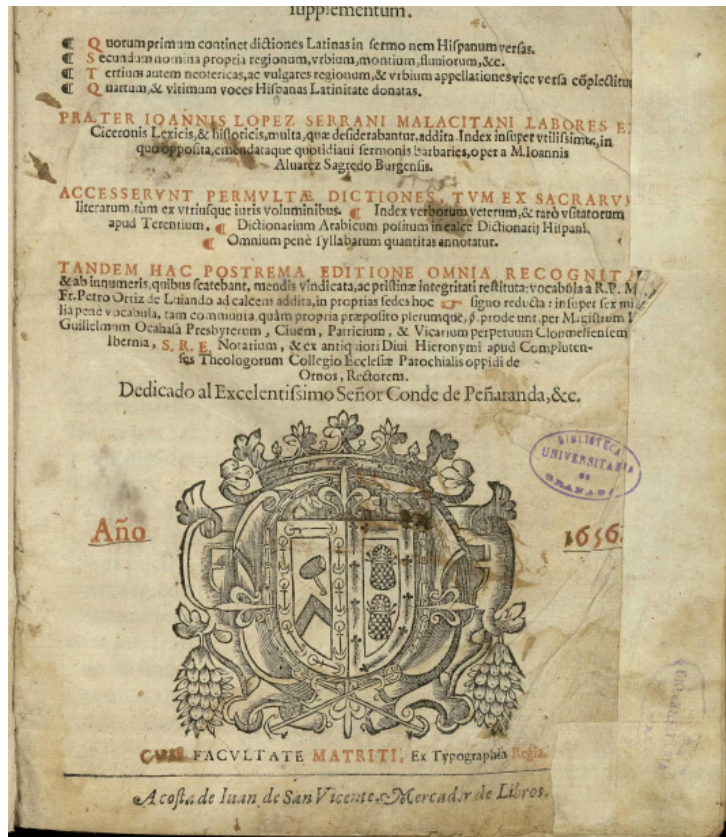 supplementum.
¶ Quorum primum continet dictiones Latinas in sermo nem Hispanum versas.
¶ Secundum nomina propria regionum, vrbium, montium, fluuiorum, &c.
¶ Tertium autem neotericas, ac vulgares regionum, & vrbium appellationes vice versa cōplectitur
¶ Quartum, & vltimum voces Hispanas Latinitate donatas.
PRÆTER IOANNIS LOPEZ SERRANI MALACITANI LABORES E
Ciceronis Lexicis, & historicis, multa, quæ desiderabantur, addita. Index insuper vtilissimus, in
quo opposita, emendataque quotidiani sermonis barbaries, oper a M. Ioannis
Aluarez Sagredo Burgensis.
ACCESSERVNT PERMVLTÆ DICTIONES, TVM EX SACRARVM
literarum, tùm ex vtriusque iuris voluminibus. ¶ Index verborum veterum, & rarò vsitatorum
apud Terentium. ¶ Dictionarium Arabicum positum in calce Dictionarij Hispani.
¶ Omnium penè syllabarum quantitas annotatur.
TANDEM HAC POSTREMA EDITIONE OMNIA RECOGNIT
& ab innumeris, quibus scatebant, mendis vindicata, ac pristinæ integritati restituta: vocabula à R. P. M
Fr. Petro Ortiz de Luiando ad calcem addita, in proprias sedes hoc ☞ signo reducta: insuper sex mi
lia penè vocabula, tam communia, quàm propria præposito plerumque, prodeunt. per Magistrum
Guilielmum Ocahasa Presbyterum, Ciuem, Patricium, & Vicarium perpetuum Clonmelsensem
Ibernia, S. R. E. Notarium, & ex antiquiori Diui Hieronymi apud Compluten-
ses Theologorum Collegio Ecclesiæ Parochialis oppidi de
Ornos, Rectorem.
Dedicado al Excelentissimo Señor Conde de Peñaranda, &c.
BIBLIOTECA
UNIVERSITARIA
DE
GRANADA
Año 1656.
CVM FACVLTATE MATRITI, Ex Typographia Regia.
A costa de Iuan de San Vicente, Mercader de Libros.